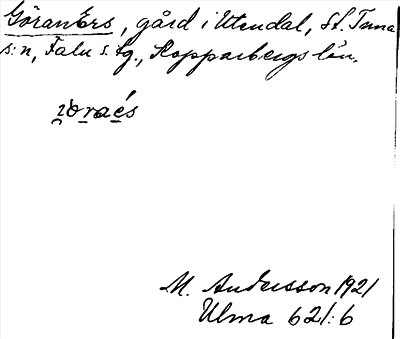 Göranérs, gård i Utendal, St. Tuna
s:n, Falu s. tg., Kopparbergs län.
M. Andersson 1921
Ulma 621:6